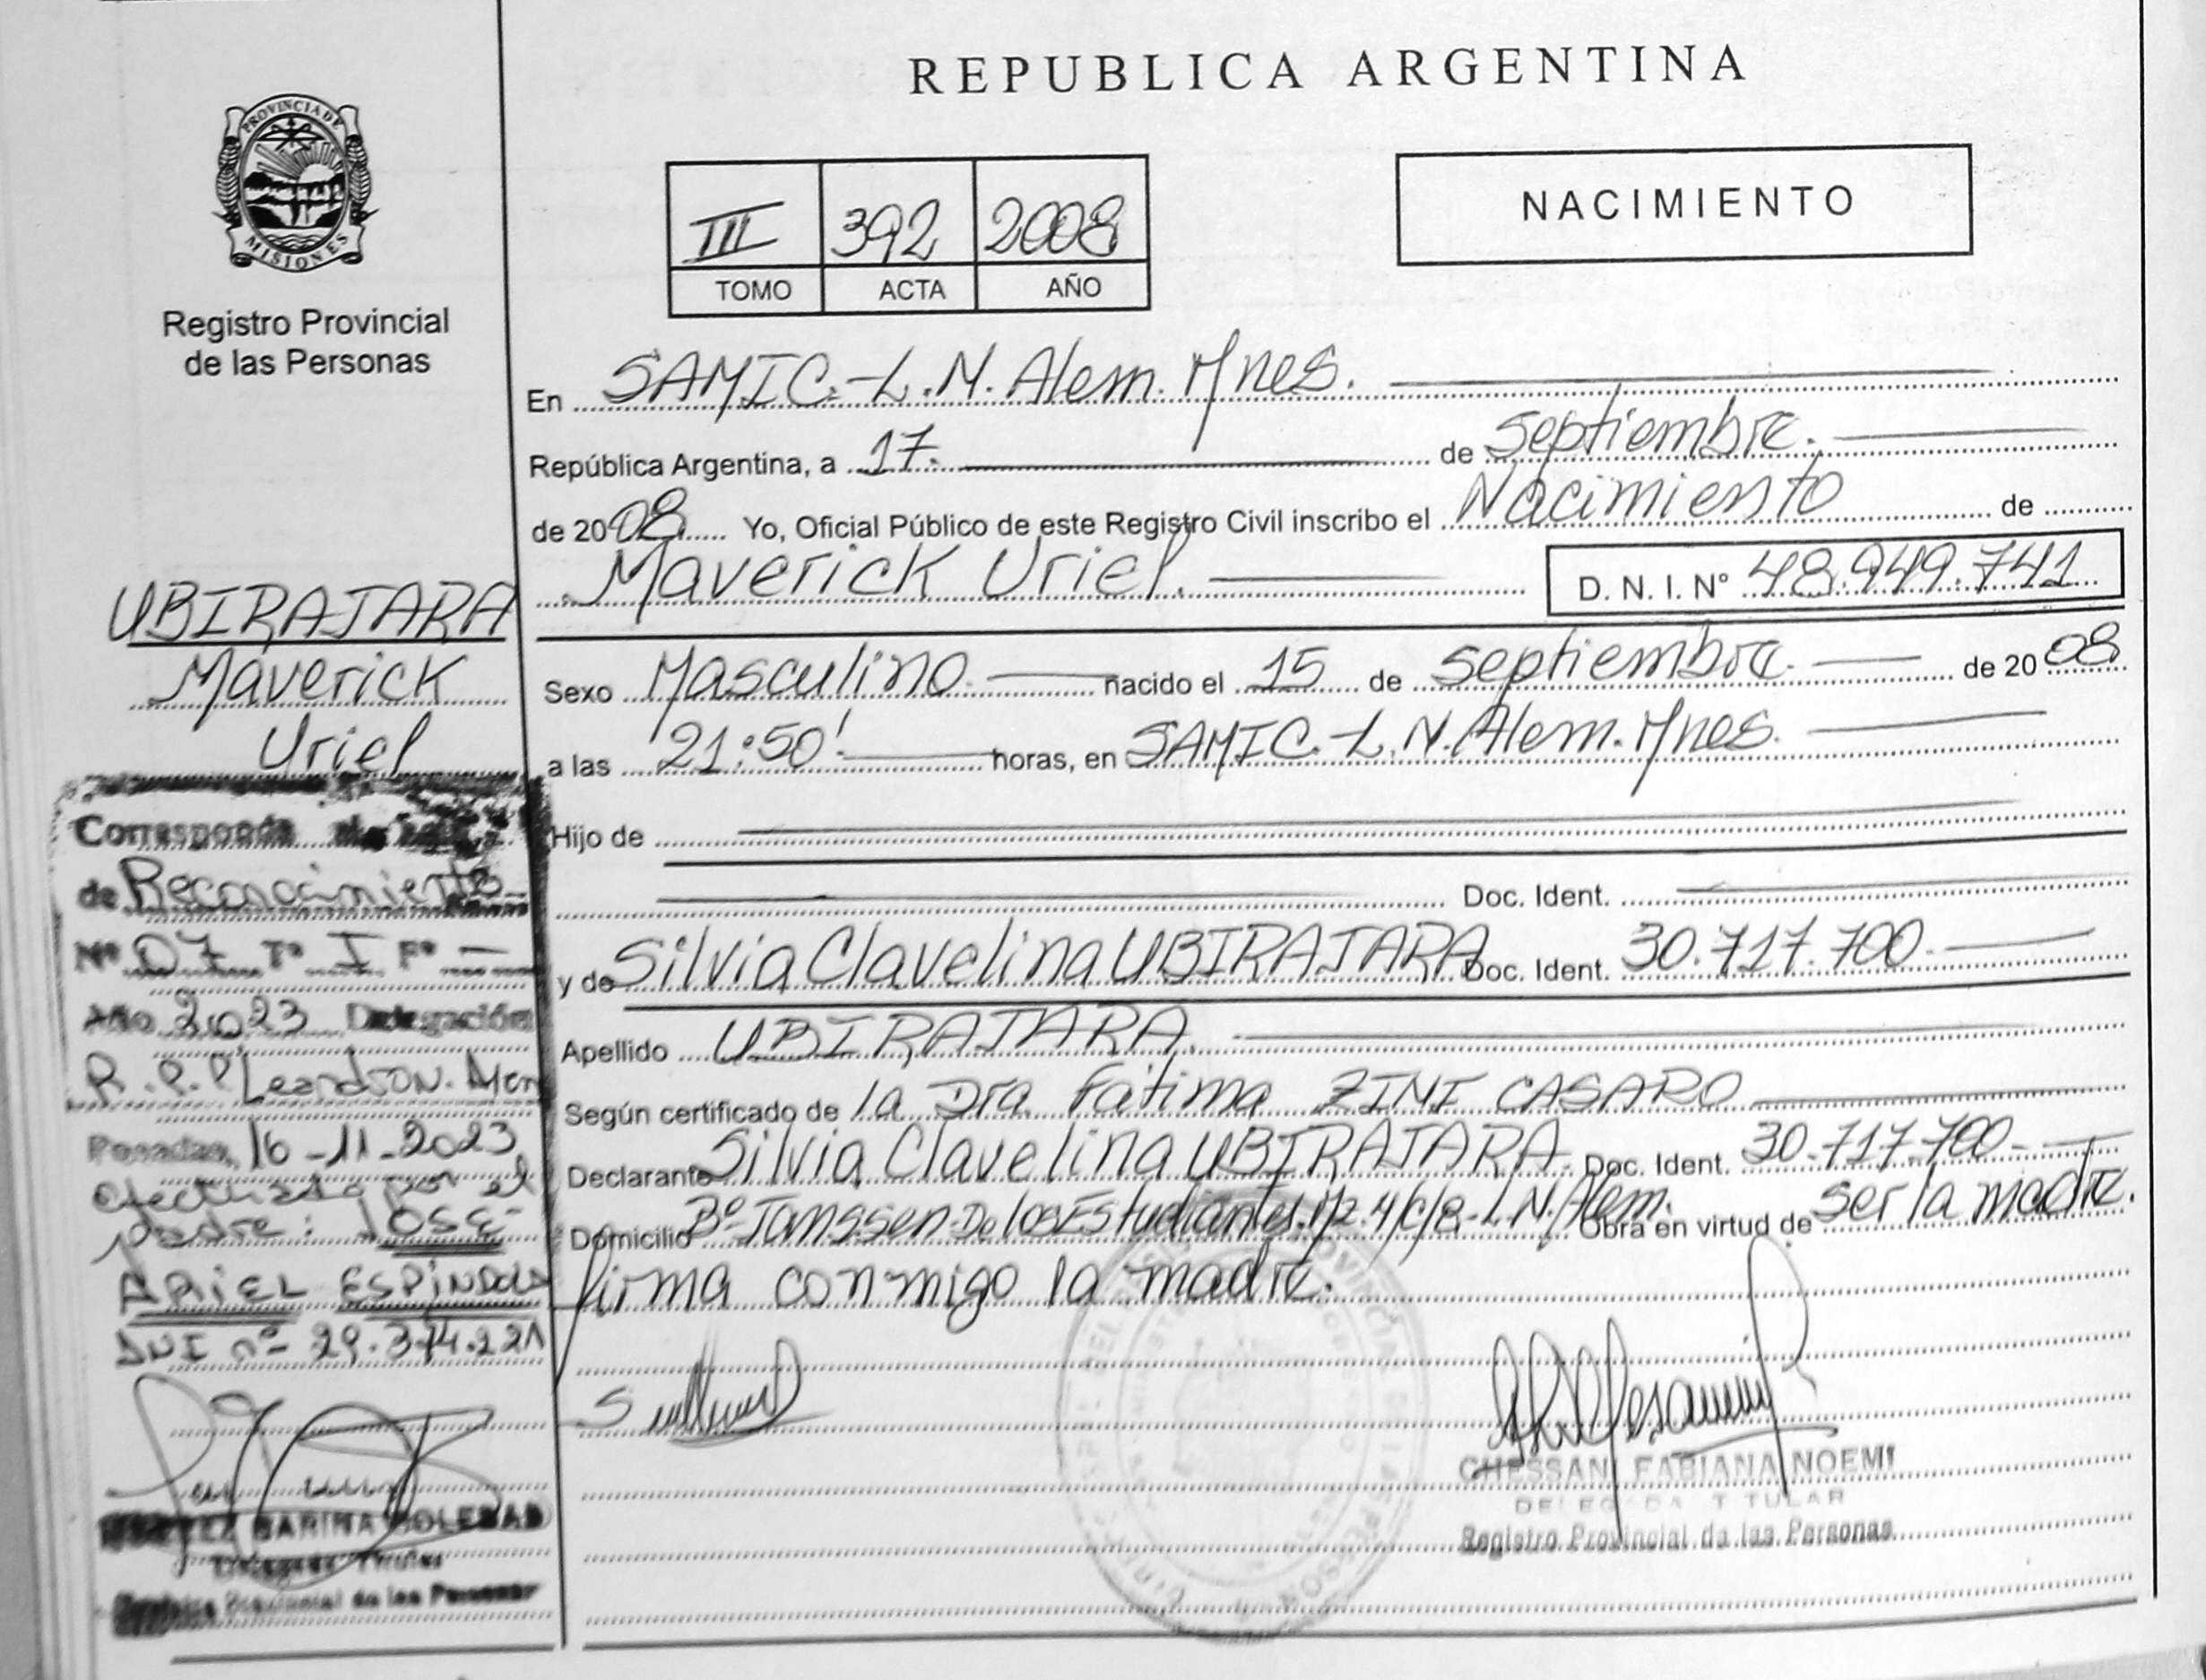 REPUBLICA ARGENTINA
PROVINCIA DE MISIONES
Registro Provincial
de las Personas
III 392 2008
TOMO ACTA AÑO
NACIMIENTO
En SAMIC.-L.N. Alem. Mnes.
República Argentina, a 17. de septiembre.
de 2008 Yo, Oficial Público de este Registro Civil inscribo el Nacimiento de
Maverick Uriel. D. N. I. N° 48.949.741
Sexo Masculino. nacido el 15 de septiembre. de 2008
a las 21:50' horas, en SAMIC.-L.N. Alem. Mnes.
Hijo de
Doc. Ident.
y de Silvia Clavelina UBIRAJARA Doc. Ident. 30.717.700.-
Apellido UBIRAJARA.
Según certificado de la Dra. Fátima ZINI CASARO
Declarante Silvia Clavelina UBIRAJARA. Doc. Ident. 30.717.700.-
Domicilio B° Janssen-De los Estudiantes. L.N. Alem. Obra en virtud de ser la madre.
firma conmigo la madre.
CHESSANI FABIANA NOEMI
DELEGADA TITULAR
Registro Provincial de las Personas
UBIRAJARA
Maverick
Uriel
Corresponde
de Reconocimiento
N° 07 T° I F° —
Año 2023 Delegación
R.P.P. Leandro N. Alem
Posadas, 16-11-2023
efectuado por el
padre: JOSE
ARIEL ESPINDOLA
DNI n° 29.374.221
SOLEDAD
Delegada Titular
Provincial de las Personas